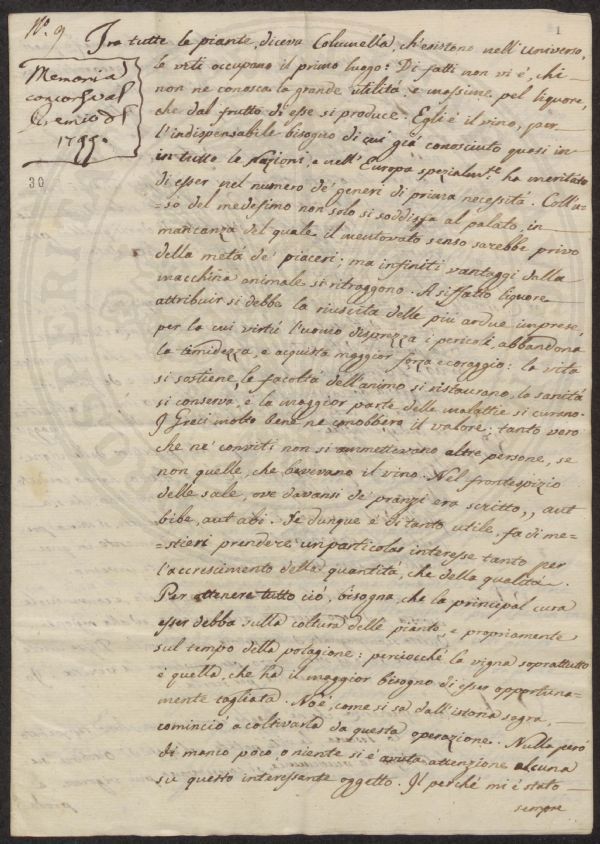 N.º 9
1
Memoria
concorsa al
Premio del
1799.
30
Tra tutte le piante, diceva Columella, ch'esistono nell'Universo,
le viti occupano il primo luogo: Di fatti non vi è, chi
non ne conosca la grande utilità, e massime pel liquore,
che dal frutto di esse si produce. Egli è il vino, per
l'indispensabile bisogno di cui già conosciuto quasi in
in tutte le Nazioni, e nell'Europa spezialm.te ha meritato
di esser nel numero de' generi di prima necessità. Coll'u-
=so del medesimo non solo si soddisfa al palato, in
mancanza del quale il mentovato senso sarebbe privo
della metà de' piaceri; ma infiniti vantaggi dalla
macchina animale si ritraggono. A siffatto liquore
attribuir si debbe la riuscita delle più ardue imprese,
per la cui virtù l'uomo disprezza i pericoli, abbandona
la timidezza, e acquista maggior forza e coraggio: la vita
si sostiene, le facoltà dell'animo si ristaurano, la sanità
si conserva, e la maggior parte delle malattie si curano.
I Greci molto bene ne conobbero il valore; tanto vero
che ne' conviti non si ammettevano altre persone, se
non quelle, che bevevano il vino. Nel frontespizio
delle sale, ove davansi de' pranzi era scritto,, aut
bibe, aut abi. Se dunque è di tanto utile, fa di me-
=stieri prendere un particolar interesse tanto per
l'accrescimento della quantità, che della qualità.
Per ottenere tutto ciò, bisogna, che la principal cura
esser debba sulla coltura delle piante, e propriamente
sul tempo della potagione: perciocché la vigna soprattutto
è quella, che ha il maggior bisogno di esser opportuna-
mente tagliata. Noè, come si sa dall'istoria sagra,
cominciò a coltivarla da questa operazione. Nulla però
di manco poco, o niente si è avuta attenzione alcuna
su questo interessante oggetto. Il perché mi è stato
sempre